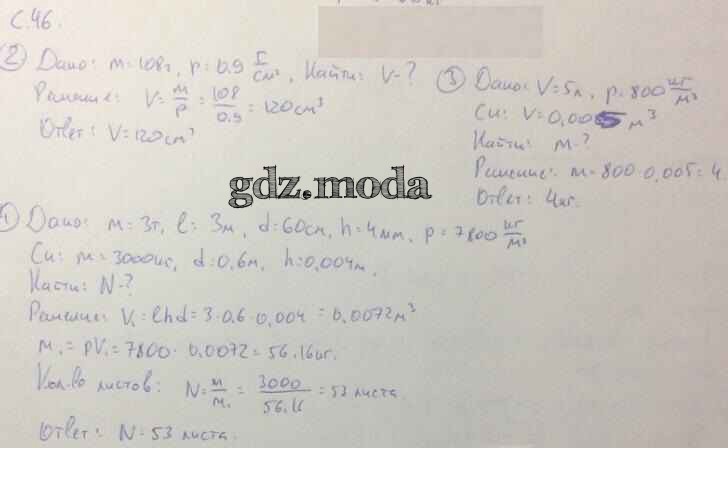 С.46.
② Дано: m=108г, ρ=0.9 г/см³, Найти: V-?
Решение: V=m/ρ=108/0.9=120см³
Ответ: V=120см³
③ Дано: V=5л, ρ=800 кг/м³
Си: V=0,005 м³
Найти: m-?
Решение: m=800·0,005=4
Ответ: 4кг.
gdz.moda
① Дано: m=3т, l=3м, d=60см, h=4мм, ρ=7800 кг/м³
Си: m=3000кг, d=0.6м, h=0,004м.
Найти: N-?
Решение: V₁=lhd=3·0.6·0,004=0,0072м³
m₁=ρV₁=7800·0,0072=56.16кг.
Кол-во листов: N=m/m₁=3000/56.16=53 листа.
Ответ: N=53 листа.